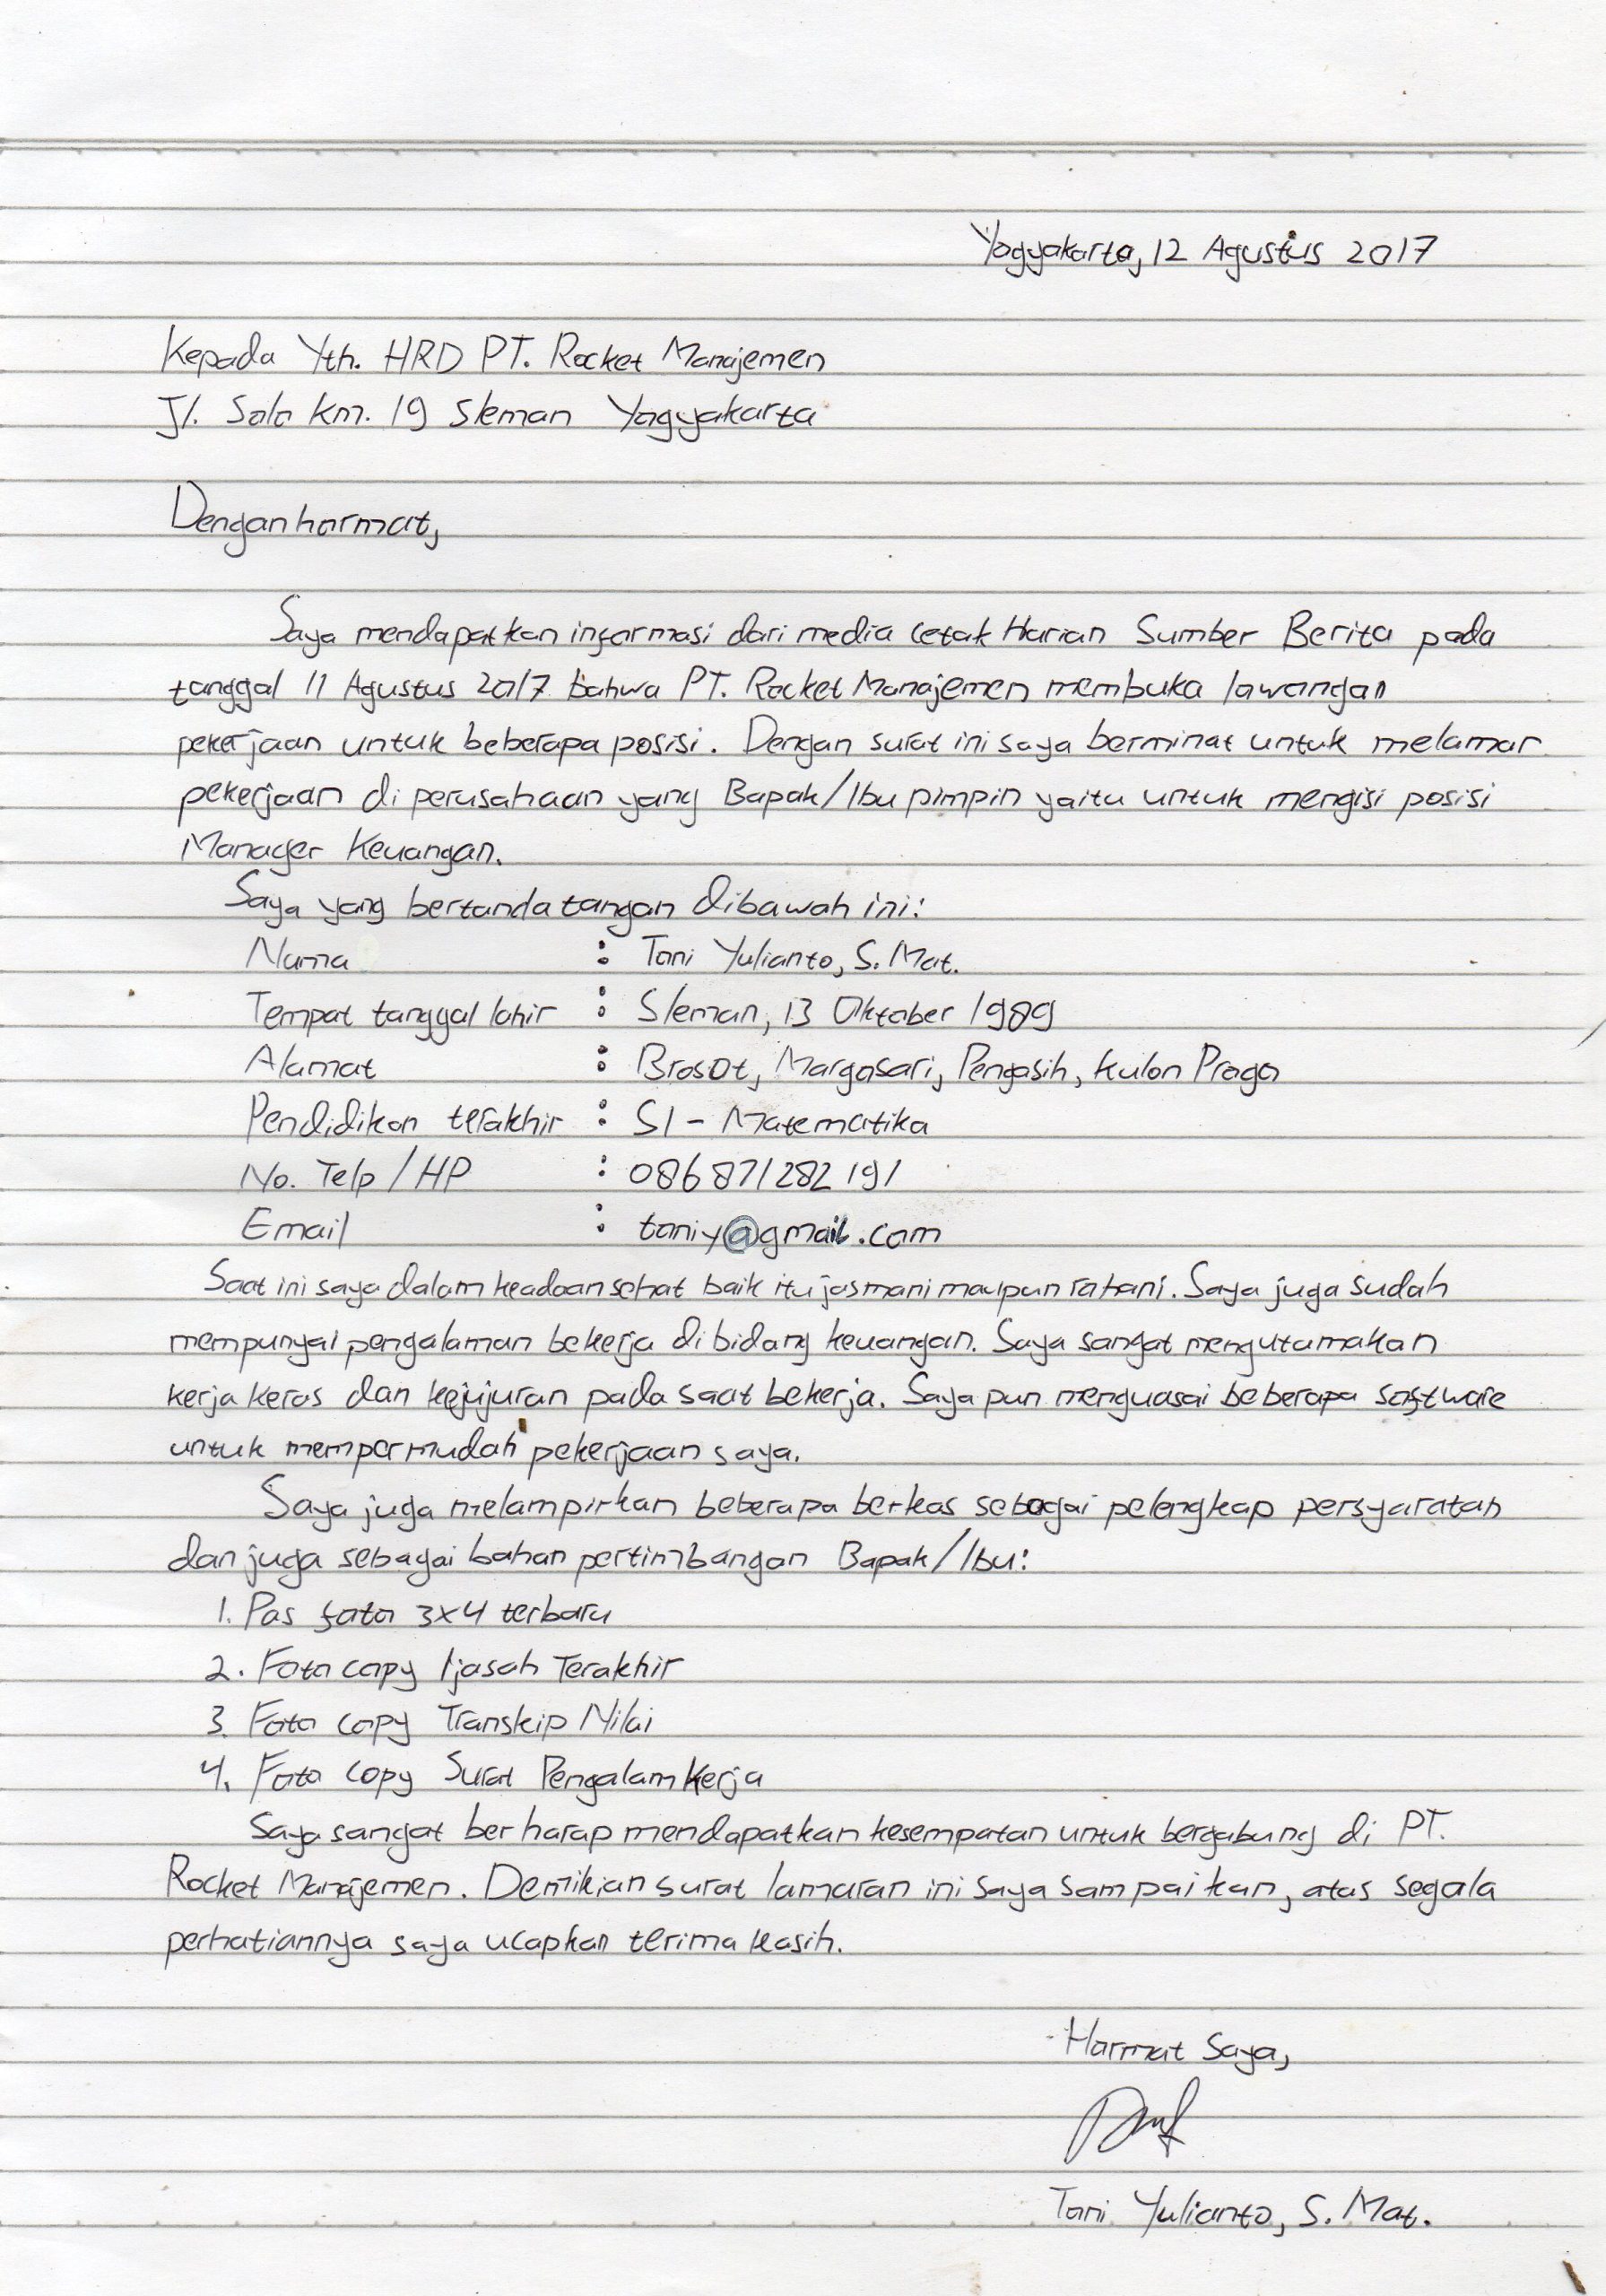 Yogyakarta, 12 Agustus 2017
Kepada Yth. HRD PT. Rocket Manajemen
Jl. Solo km. 19 Sleman Yogyakarta
Dengan hormat,
Saya mendapatkan informasi dari media cetak Harian Sumber Berita pada
tanggal 11 Agustus 2017 bahwa PT. Rocket Manajemen membuka lowongan
pekerjaan untuk beberapa posisi. Dengan surat ini saya berminat untuk melamar
pekerjaan di perusahaan yang Bapak/Ibu pimpin yaitu untuk mengisi posisi
Manager Keuangan.
Saya yang bertanda tangan dibawah ini:
Nama : Toni Yulianto, S. Mat.
Tempat tanggal lahir : Sleman, 13 Oktober 1989
Alamat : Brosot, Margosari, Pengasih, Kulon Progo
Pendidikan terakhir : S1 - Matematika
No. Telp / HP : 086871282191
Email : toniy@gmail.com
Saat ini saya dalam keadaan sehat baik itu jasmani maupun rohani. Saya juga sudah
mempunyai pengalaman bekerja di bidang keuangan. Saya sangat mengutamakan
kerja keras dan kejujuran pada saat bekerja. Saya pun menguasai beberapa software
untuk mempermudah pekerjaan saya.
Saya juga melampirkan beberapa berkas sebagai pelengkap persyaratan
dan juga sebagai bahan pertimbangan Bapak/Ibu:
1. Pas foto 3x4 terbaru
2. Foto copy Ijasah Terakhir
3. Foto copy Transkip Nilai
4. Foto copy Surat Pengalam Kerja
Saya sangat berharap mendapatkan kesempatan untuk bergabung di PT.
Rocket Manajemen. Demikian surat lamaran ini saya sampaikan, atas segala
perhatiannya saya ucapkan terima kasih.
Hormat Saya,
Toni Yulianto, S. Mat.